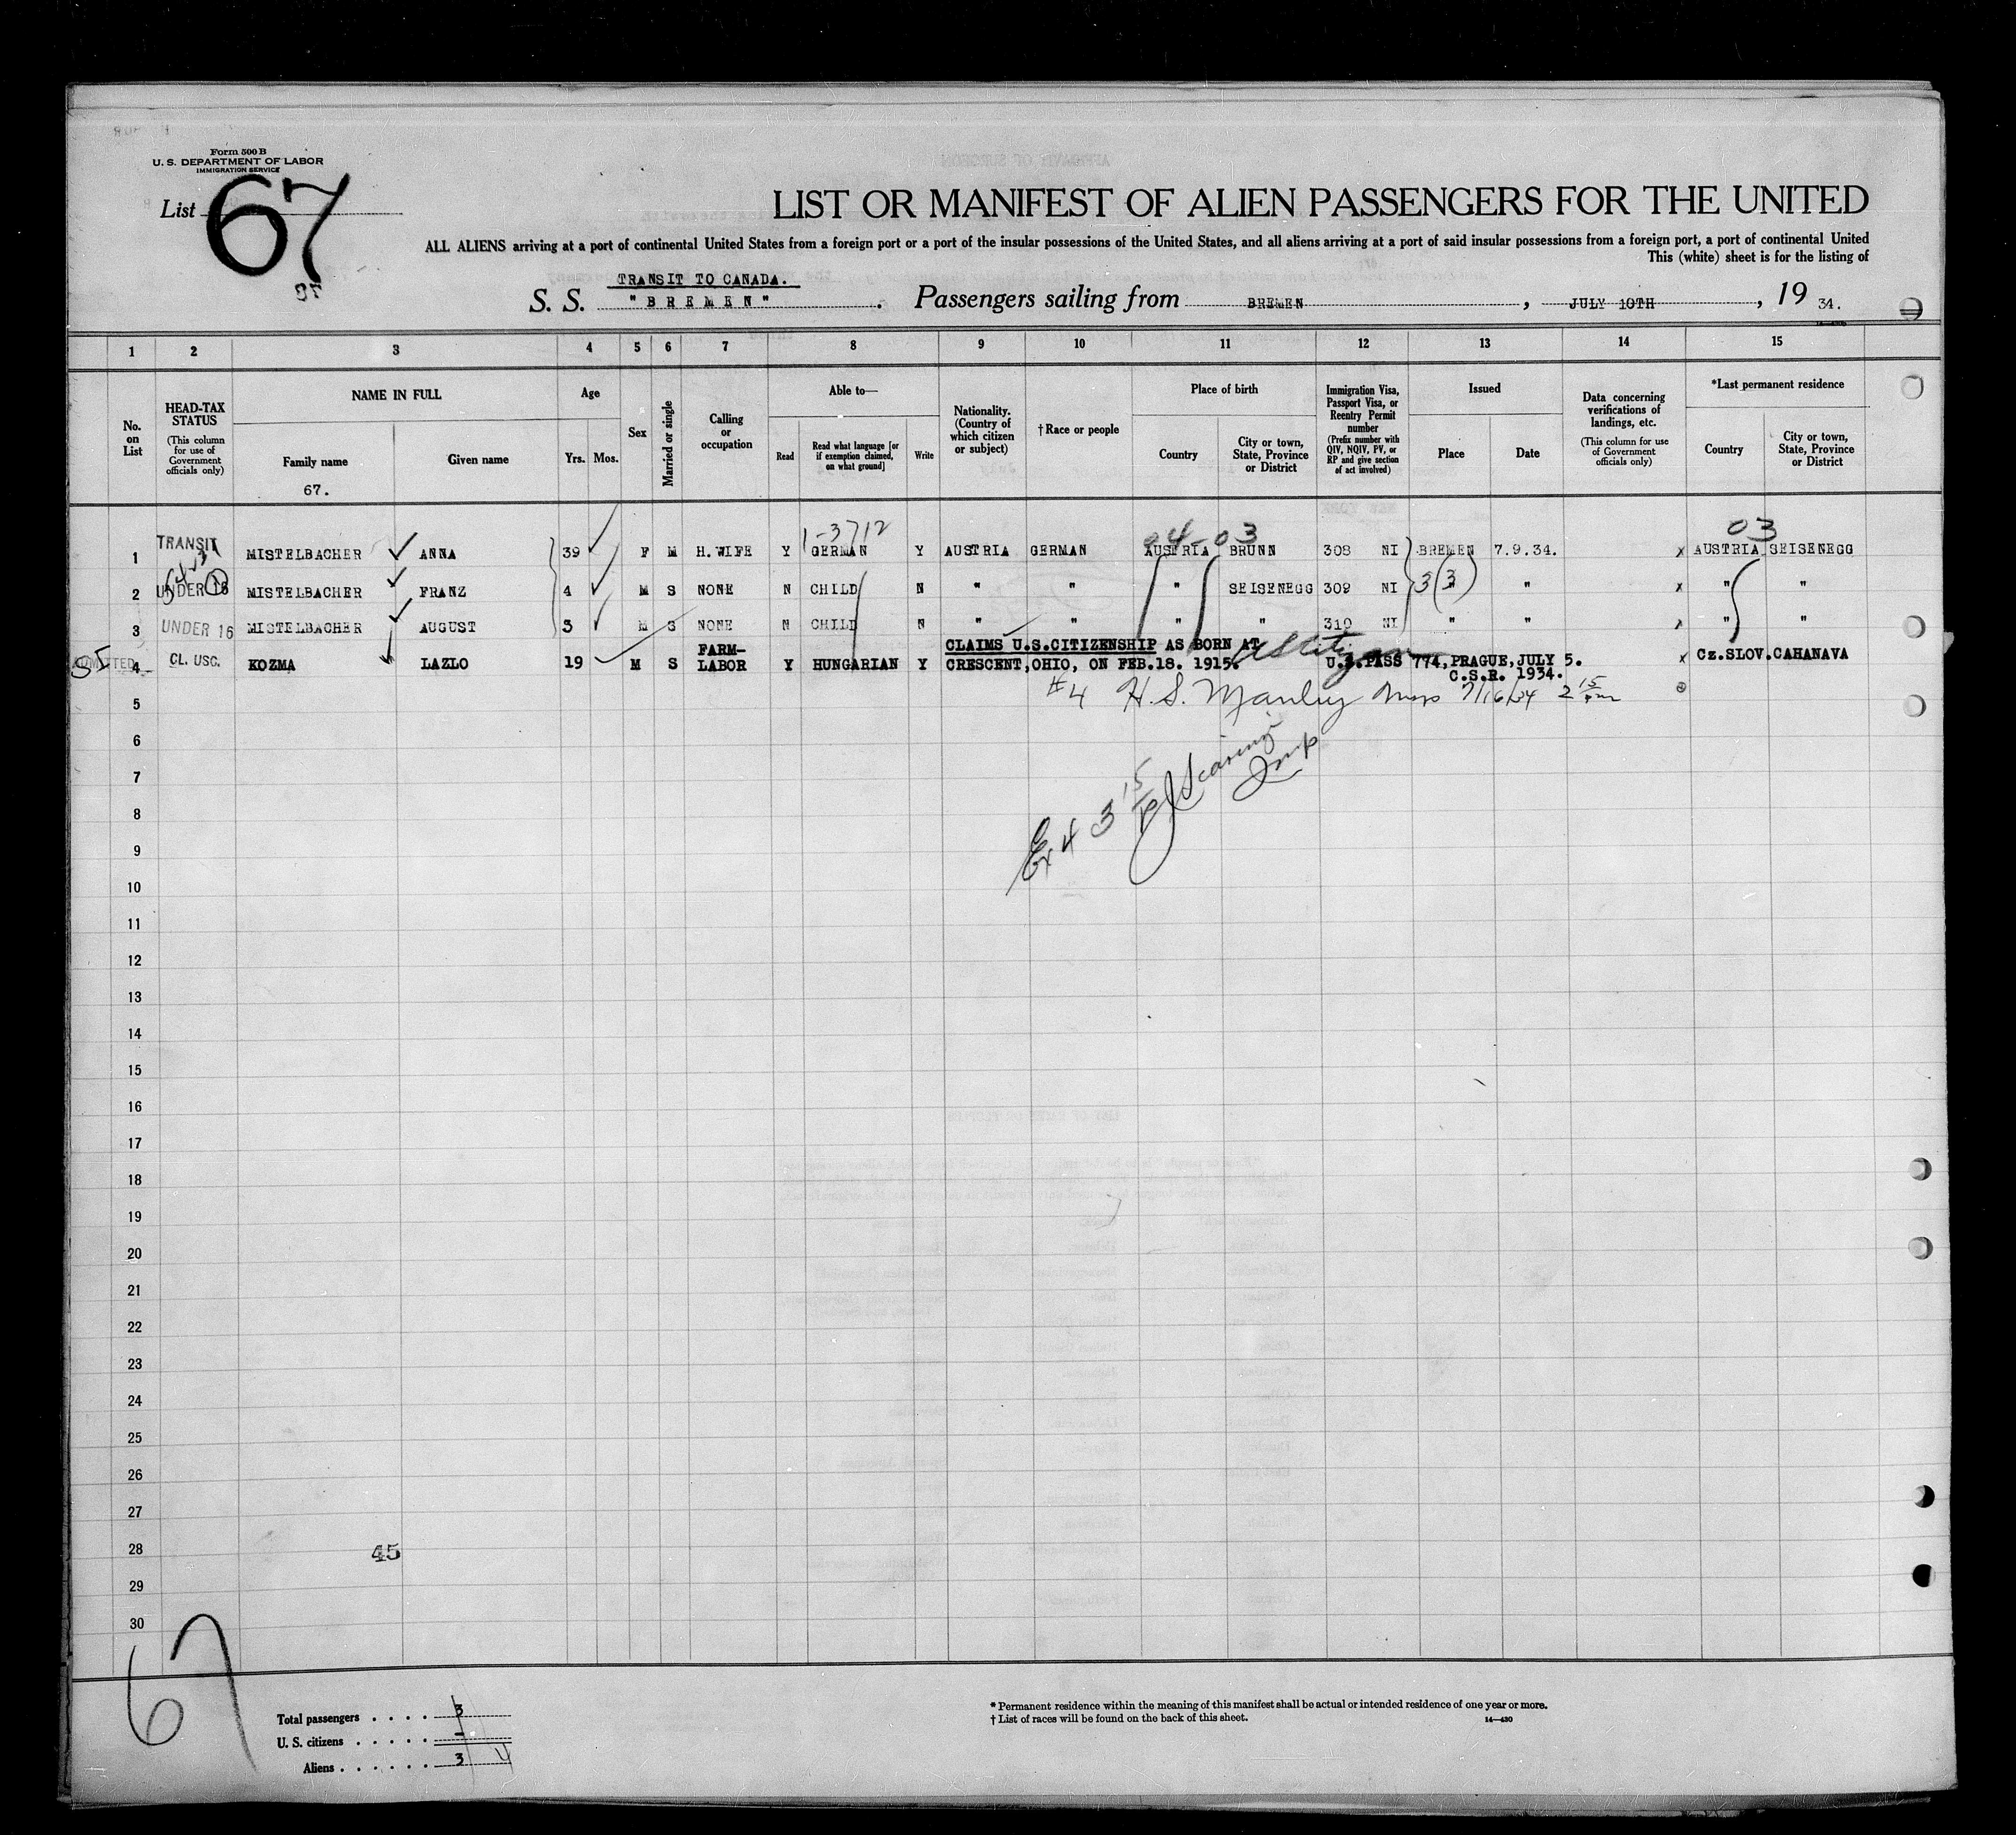 Form 500 B
U. S. DEPARTMENT OF LABOR
IMMIGRATION SERVICE
List 67
LIST OR MANIFEST OF ALIEN PASSENGERS FOR THE UNITED
ALL ALIENS arriving at a port of continental United States from a foreign port or a port of the insular possessions of the United States, and all aliens arriving at a port of said insular possessions from a foreign port, a port of continental United
This (white) sheet is for the listing of
TRANSIT TO CANADA.
S. S. "BREMEN". Passengers sailing from BREMEN, JULY 10TH, 19 34.
1 2 3 4 5 6 7 8 9 10 11 12 13 14 15
No. on List
HEAD-TAX STATUS (This column for use of Government officials only)
NAME IN FULL
Family name
Given name
67.
Age
Yrs. Mos.
Sex
Married or single
Calling or occupation
Able to—
Read
Read what language [or if exemption claimed, on what ground]
Write
Nationality. (Country of which citizen or subject)
†Race or people
Place of birth
Country
City or town, State, Province or District
Immigration Visa, Passport Visa, or Reentry Permit number (Prefix number with QIV, NQIV, PV, or RP and give section of act involved)
Issued
Place
Date
Data concerning verifications of landings, etc. (This column for use of Government officials only)
*Last permanent residence
Country
City or town, State, Province or District
1-3712 04-03 03
1 TRANSIT MISTELBACHER ANNA 39 F M H.WIFE Y GERMAN Y AUSTRIA GERMAN AUSTRIA BRUNN 308 NI BREMEN 7.9.34. x AUSTRIA SEISENEGG
2 UNDER 16 MISTELBACHER FRANZ 4 M S NONE N CHILD N " " " SEISENEGG 309 NI 3(3) " " x " "
3 UNDER 16 MISTELBACHER AUGUST 3 M S NONE N CHILD N " " " " 310 NI " " x " "
CLAIMS U.S.CITIZENSHIP AS BORN AT
SI ADMITTED 4 CL. USC. KOZMA LAZLO 19 M S FARM-LABOR Y HUNGARIAN Y CRESCENT, OHIO, ON FEB.18. 1915. US Citizen U.S.PASS 774, PRAGUE, JULY 5. x Cz.SLOV. CAHANAVA
C.S.R. 1934.
5 #4 H. S. Manley Insp 7/16/34 2 15 pm
6
7
8
Ex 4 3 15 P
Insp
9
10
11
12
13
14
15
16
17
18
19
20
21
22
23
24
25
26
27
28
45
29
30
67
Total passengers . . . . 3
U. S. citizens . . . . . -
Aliens . . . . . . 3 4
* Permanent residence within the meaning of this manifest shall be actual or intended residence of one year or more.
† List of races will be found on the back of this sheet.
14—430